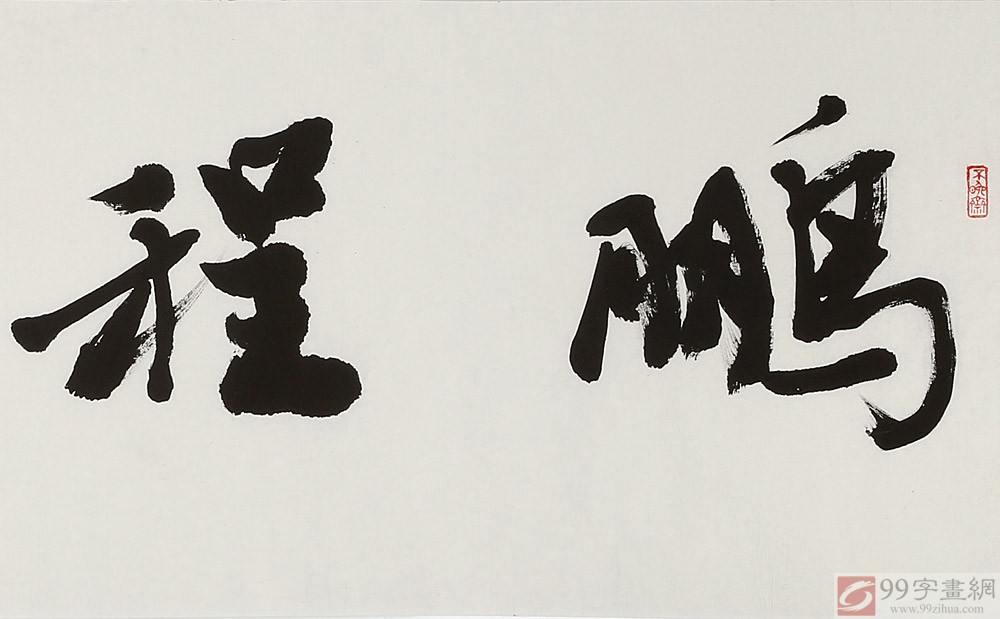 鵬程
99字畫網
www.99zihua.com